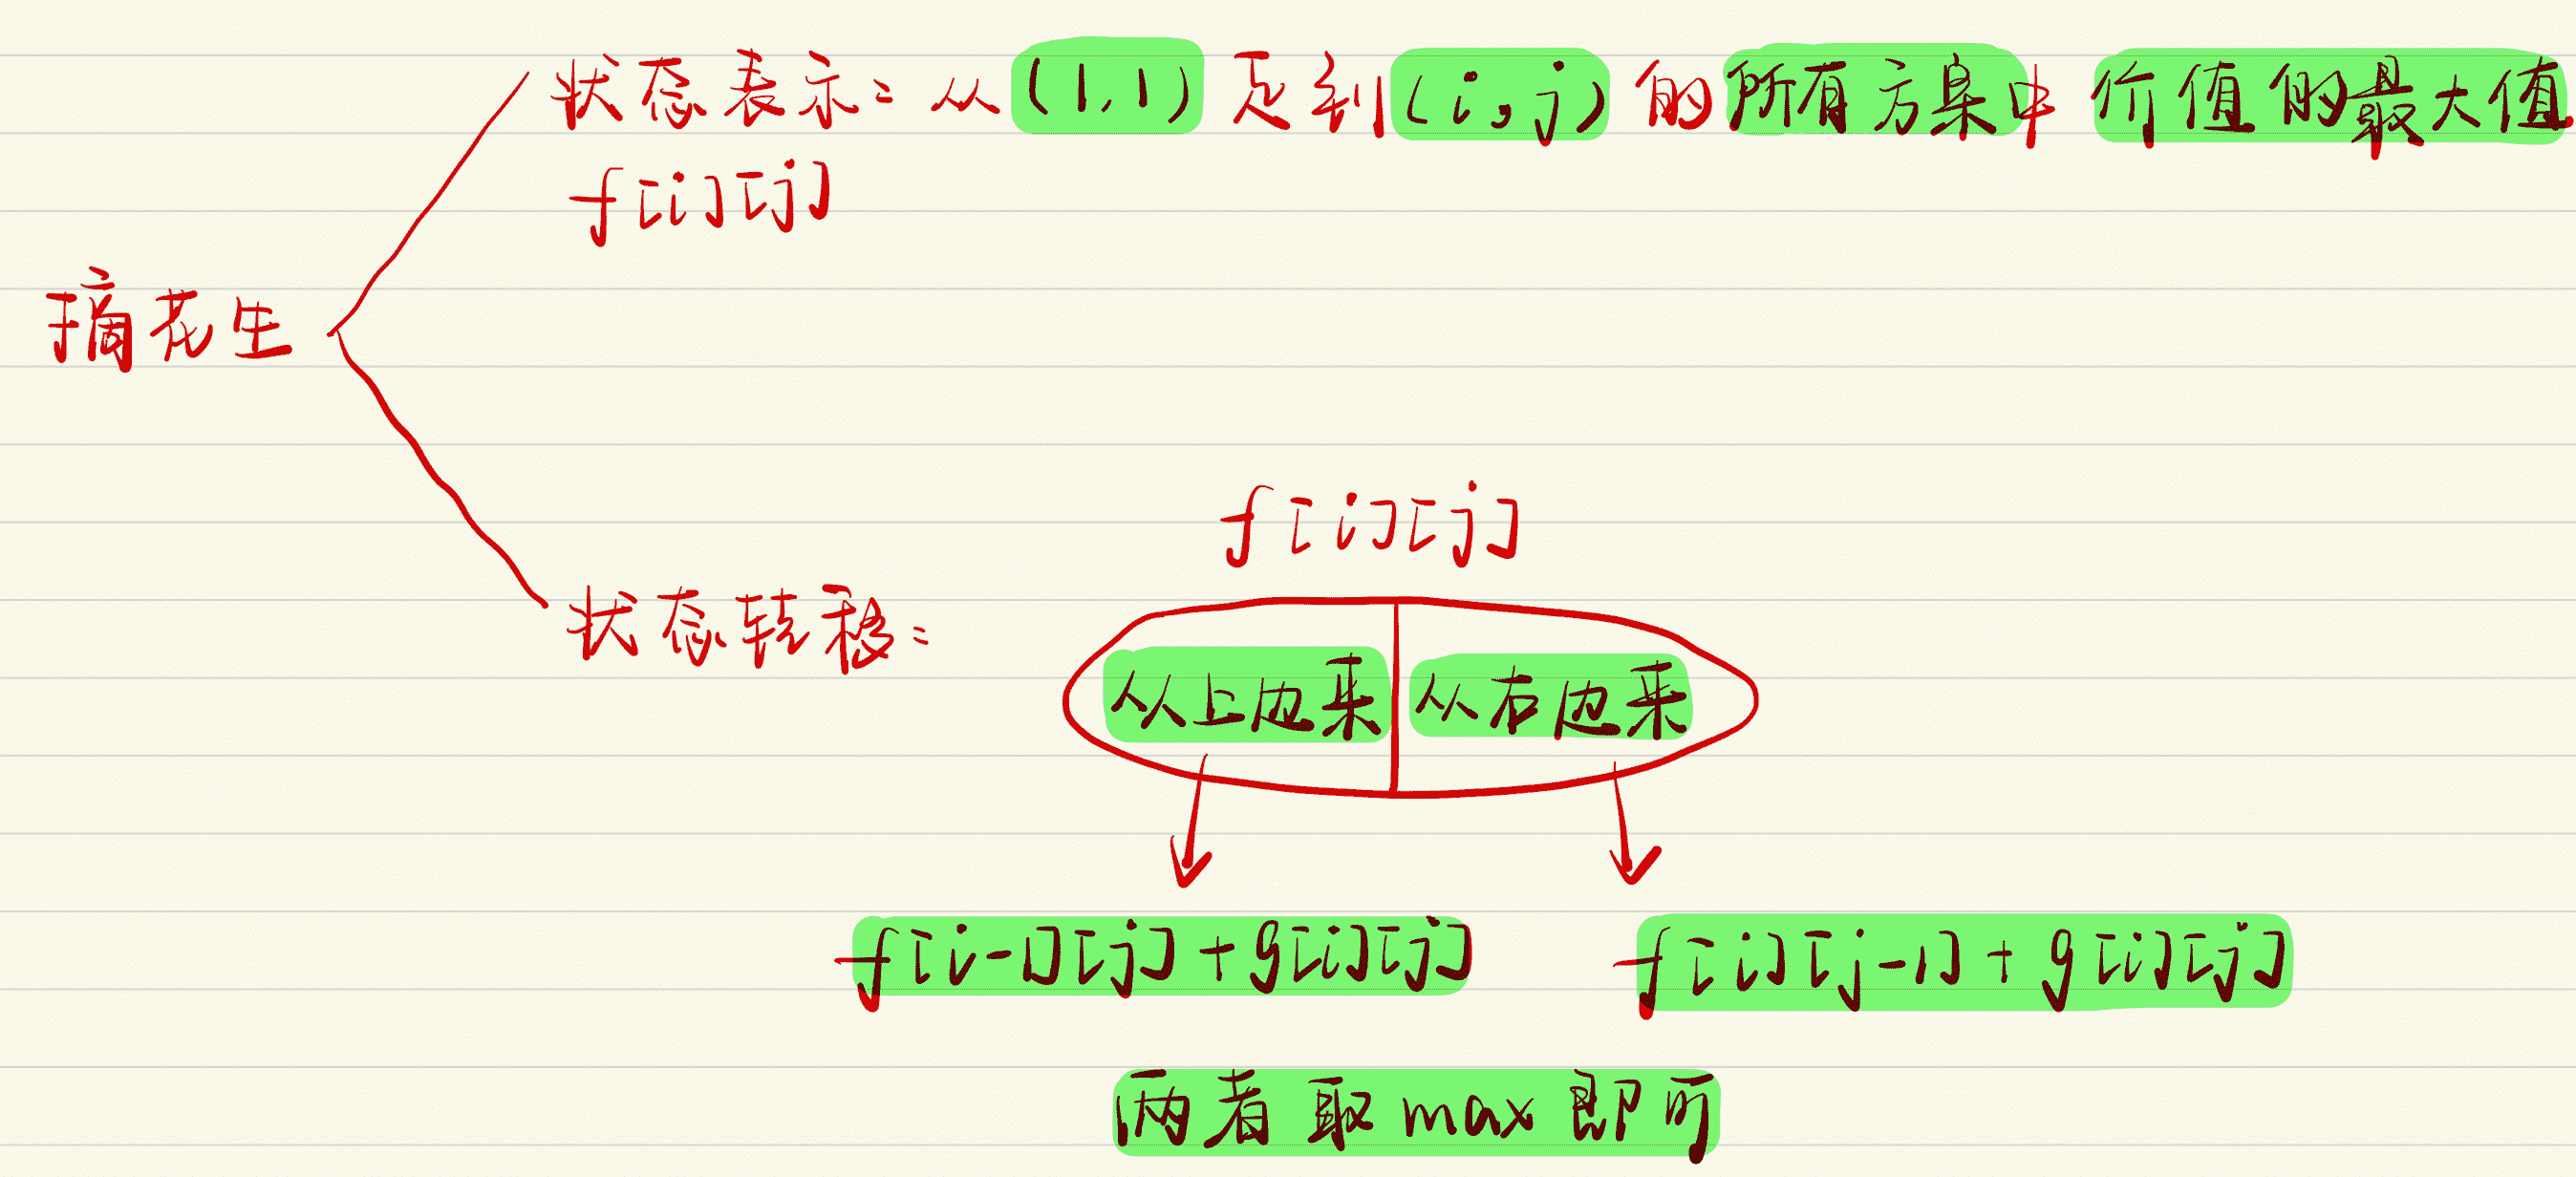 状态表示：从(1,1)走到(i,j)的所有方案中价值的最大值.
f[i][j]
摘花生
f[i][j]
状态转移：
从上边来 从右边来
f[i-1][j]+g[i][j] f[i][j-1]+g[i][j]
两者取max即可